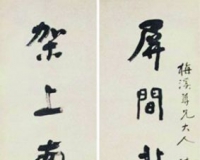 梅溪尊兄大人
屏間北
架上南